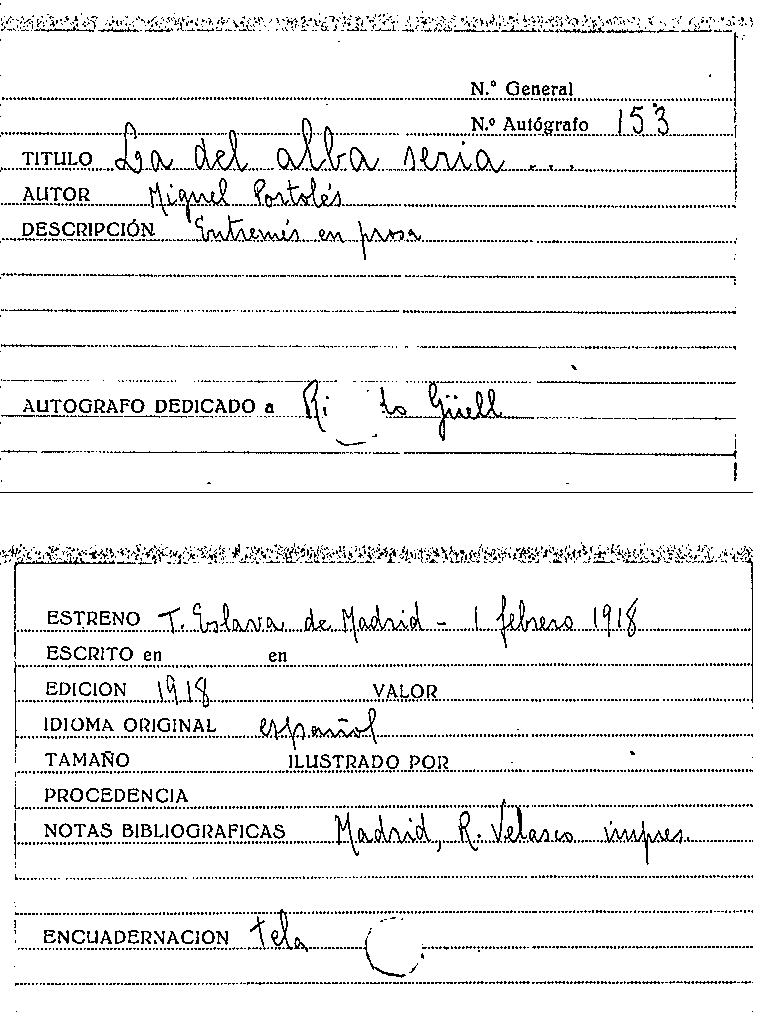 N.º General
N.º Autógrafo 153
TITULO La del alba seria ...
AUTOR Miguel Portolés
DESCRIPCIÓN Entremés en prosa
AUTOGRAFO DEDICADO a Ri to Güell
ESTRENO T. Eslava de Madrid - 1 febrero 1918
ESCRITO en en
EDICION 1918 VALOR
IDIOMA ORIGINAL español
TAMAÑO ILUSTRADO POR
PROCEDENCIA
NOTAS BIBLIOGRAFICAS Madrid, R. Velasco impres.
ENCUADERNACION tela